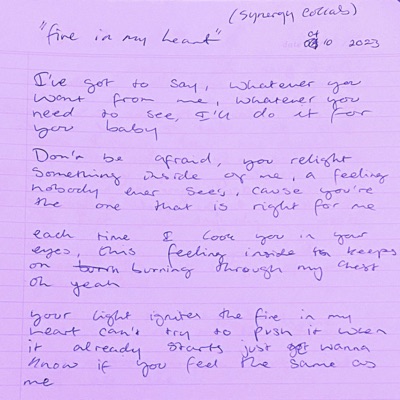 (synergy collab)
"fire in my heart"
10 2023
I've got to say, whatever you
want from me, whatever you
need to see, I'll do it for
you baby
Don't be afraid, you relight
something inside of me, a feeling
nobody ever sees, cause you're
the one that is right for me
each time I look you in your
eyes, this feeling inside keeps
on burning through my chest
oh yeah
your light ignites the fire in my
heart can't try to push it when
it already starts just wanna
know if you feel the same as
me